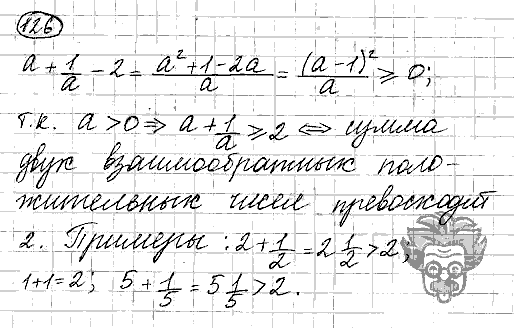 126
a + 1/a − 2 = (a² + 1 − 2a)/a = (a − 1)²/a ⩾ 0;
т.к. a > 0 ⇒ a + 1/a ⩾ 2 ⇔ сумма
двух взаимообратных поло-
жительных чисел превосходит
2. Примеры: 2 + 1/2 = 2 1/2 > 2;
1+1=2; 5 + 1/5 = 5 1/5 > 2.